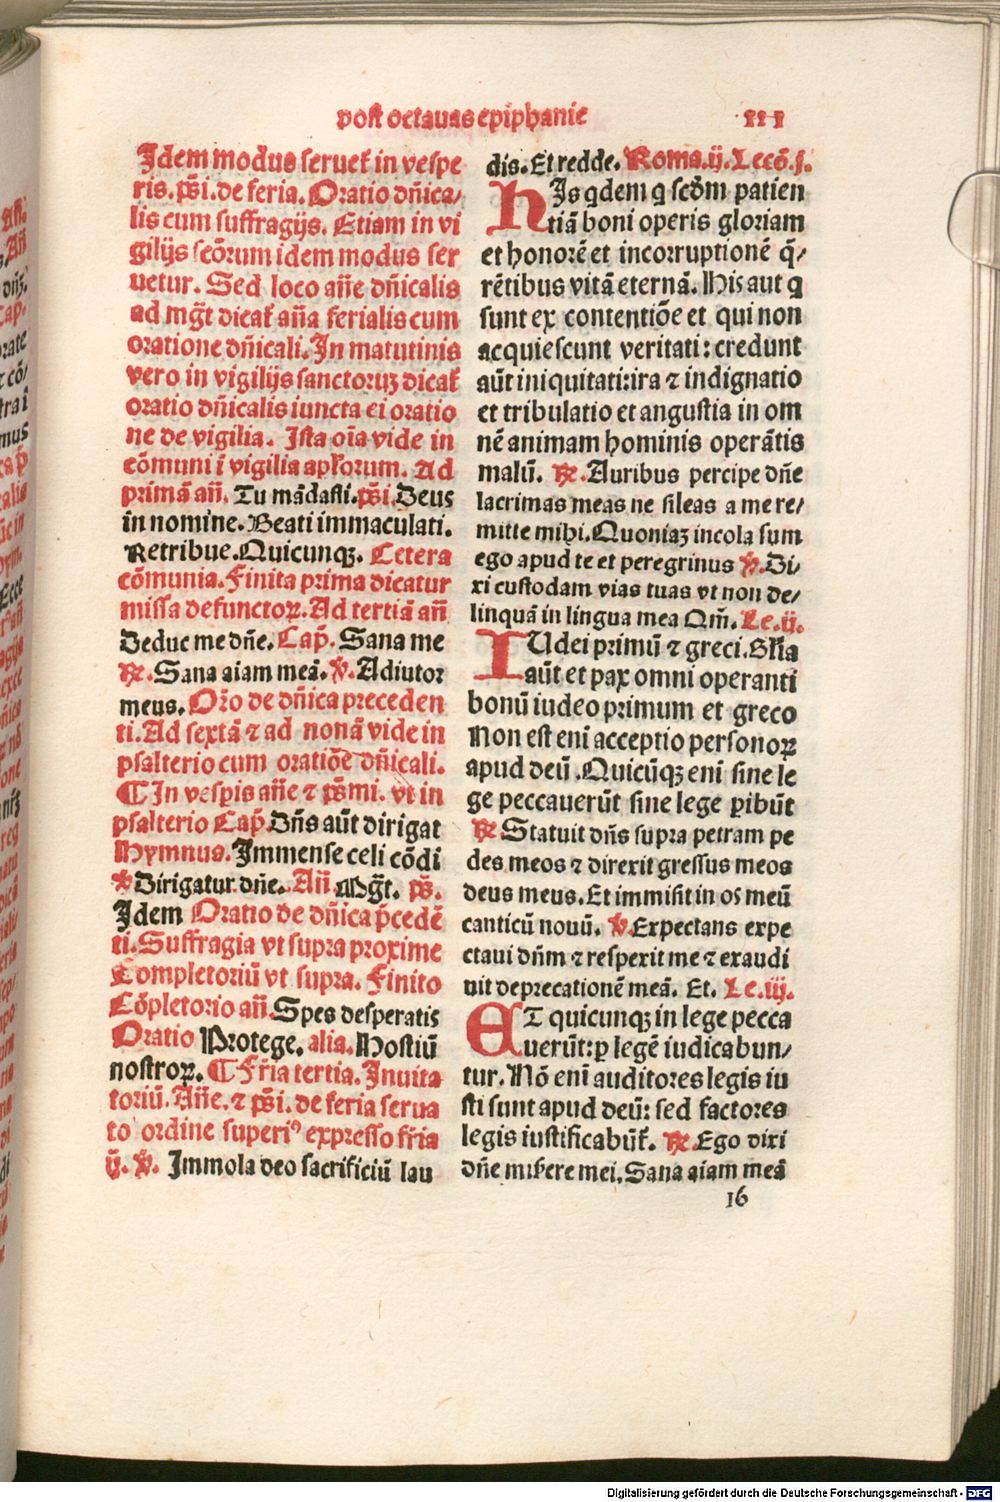 post octauas epiphanie
Idem modus seruet᷑ in vespe
ris. ps̄i. de feria. Oratio dn̄ica/
lis cum suffragijs. Etiam in vi
gilijs scōrum idem modus ser
uetur. Sed loco an̄e dn̄icalis
ad mḡt dicat᷑ an̄a ferialis cum
oratione dn̄icali. In matutinis
vero in vigilijs sanctoruꝫ dicat᷑
oratio dn̄icalis iuncta ei oratio
ne de vigilia. Ista oīa vide in
cōmuni ī vigilia apl'orum. Ad
primā an̄. Tu mādasti. ps̄i. Deus
in nomine. Beati immaculati.
Retribue. Quicunqꝫ. Cetera
cōmunia. Finita prima dicatur
missa defunctoꝝ. Ad tertiā an̄
Deduc me dn̄e. Cap̄. Sana me
℟. Sana aiam meā. ℣. Adiutor
meus. Or̄o de dn̄ica preceden
ti. Ad sextā ⁊ ad nonā vide in
psalterio cum oratiōe dn̄icali.
¶ In vesp̄is an̄e ⁊ ps̄mi. vt in
psalterio Cap̄. Dn̄s aūt dirigat
Hymnus. Immense celi cōdi
℣ Dirigatur dn̄e. An̄. Mḡt. ps̄.
Idem Oratio de dn̄ica p̄cedē
ti. Suffragia vt supra proxime
Completoriū vt supra. Finito
Cōpletorio an̄. Spes desperatis
Oratio Protege. alia. Hostiū
nostroꝝ. ¶ Fr̄ia tertia. Inuita
toriū. An̄e. ⁊ ps̄i. de feria serua
to ordine superiꝰ expresso fr̄ia
ij. ℣. Immola deo sacrificiū lau
dis. Et redde. Roma. ij. Lecō. j.
HIs qdem q scd̄m patien
tiā boni operis gloriam
et honorē et incorruptionē q̄/
rētibus vitā eternā. His aut q
sunt ex contentiōe et qui non
acquiescunt veritati: credunt
aūt iniquitati: ira ⁊ indignatio
et tribulatio et angustia in om
nē animam hominis operātis
malū. ℟. Auribus percipe dn̄e
lacrimas meas ne sileas a me re/
mitte mihi. Quoniaꝫ incola sum
ego apud te et peregrinus ℣. Di/
xi custodam vias tuas vt non de/
linquā in lingua mea Qm̄. Le. ij.
IUdei primū ⁊ greci. Gl'ia
aūt et pax omni operanti
bonū iudeo primum et greco
Non est eni acceptio personoꝝ
apud deū. Quicūqꝫ eni sine le
ge peccauerūt sine lege ꝑibūt
℟ Statuit dn̄s supra petram pe
des meos ⁊ direxit gressus meos
deus meus. Et immisit in os meū
canticū nouū. ℣. Expectans expe
ctaui dn̄m ⁊ respexit me ⁊ exaudi
uit deprecationē meā. Et. Le. iij.
ET quicunqꝫ in lege pecca
uerūt: ꝑ legē iudicabun/
tur. Nō eni auditores legis iu
sti sunt apud deū: sed factores
legis iustificabūt᷑. ℟. Ego dixi
dn̄e miserere mei. Sana aiam meā
16
Digitalisierung gefördert durch die Deutsche Forschungsgemeinschaft - DFG